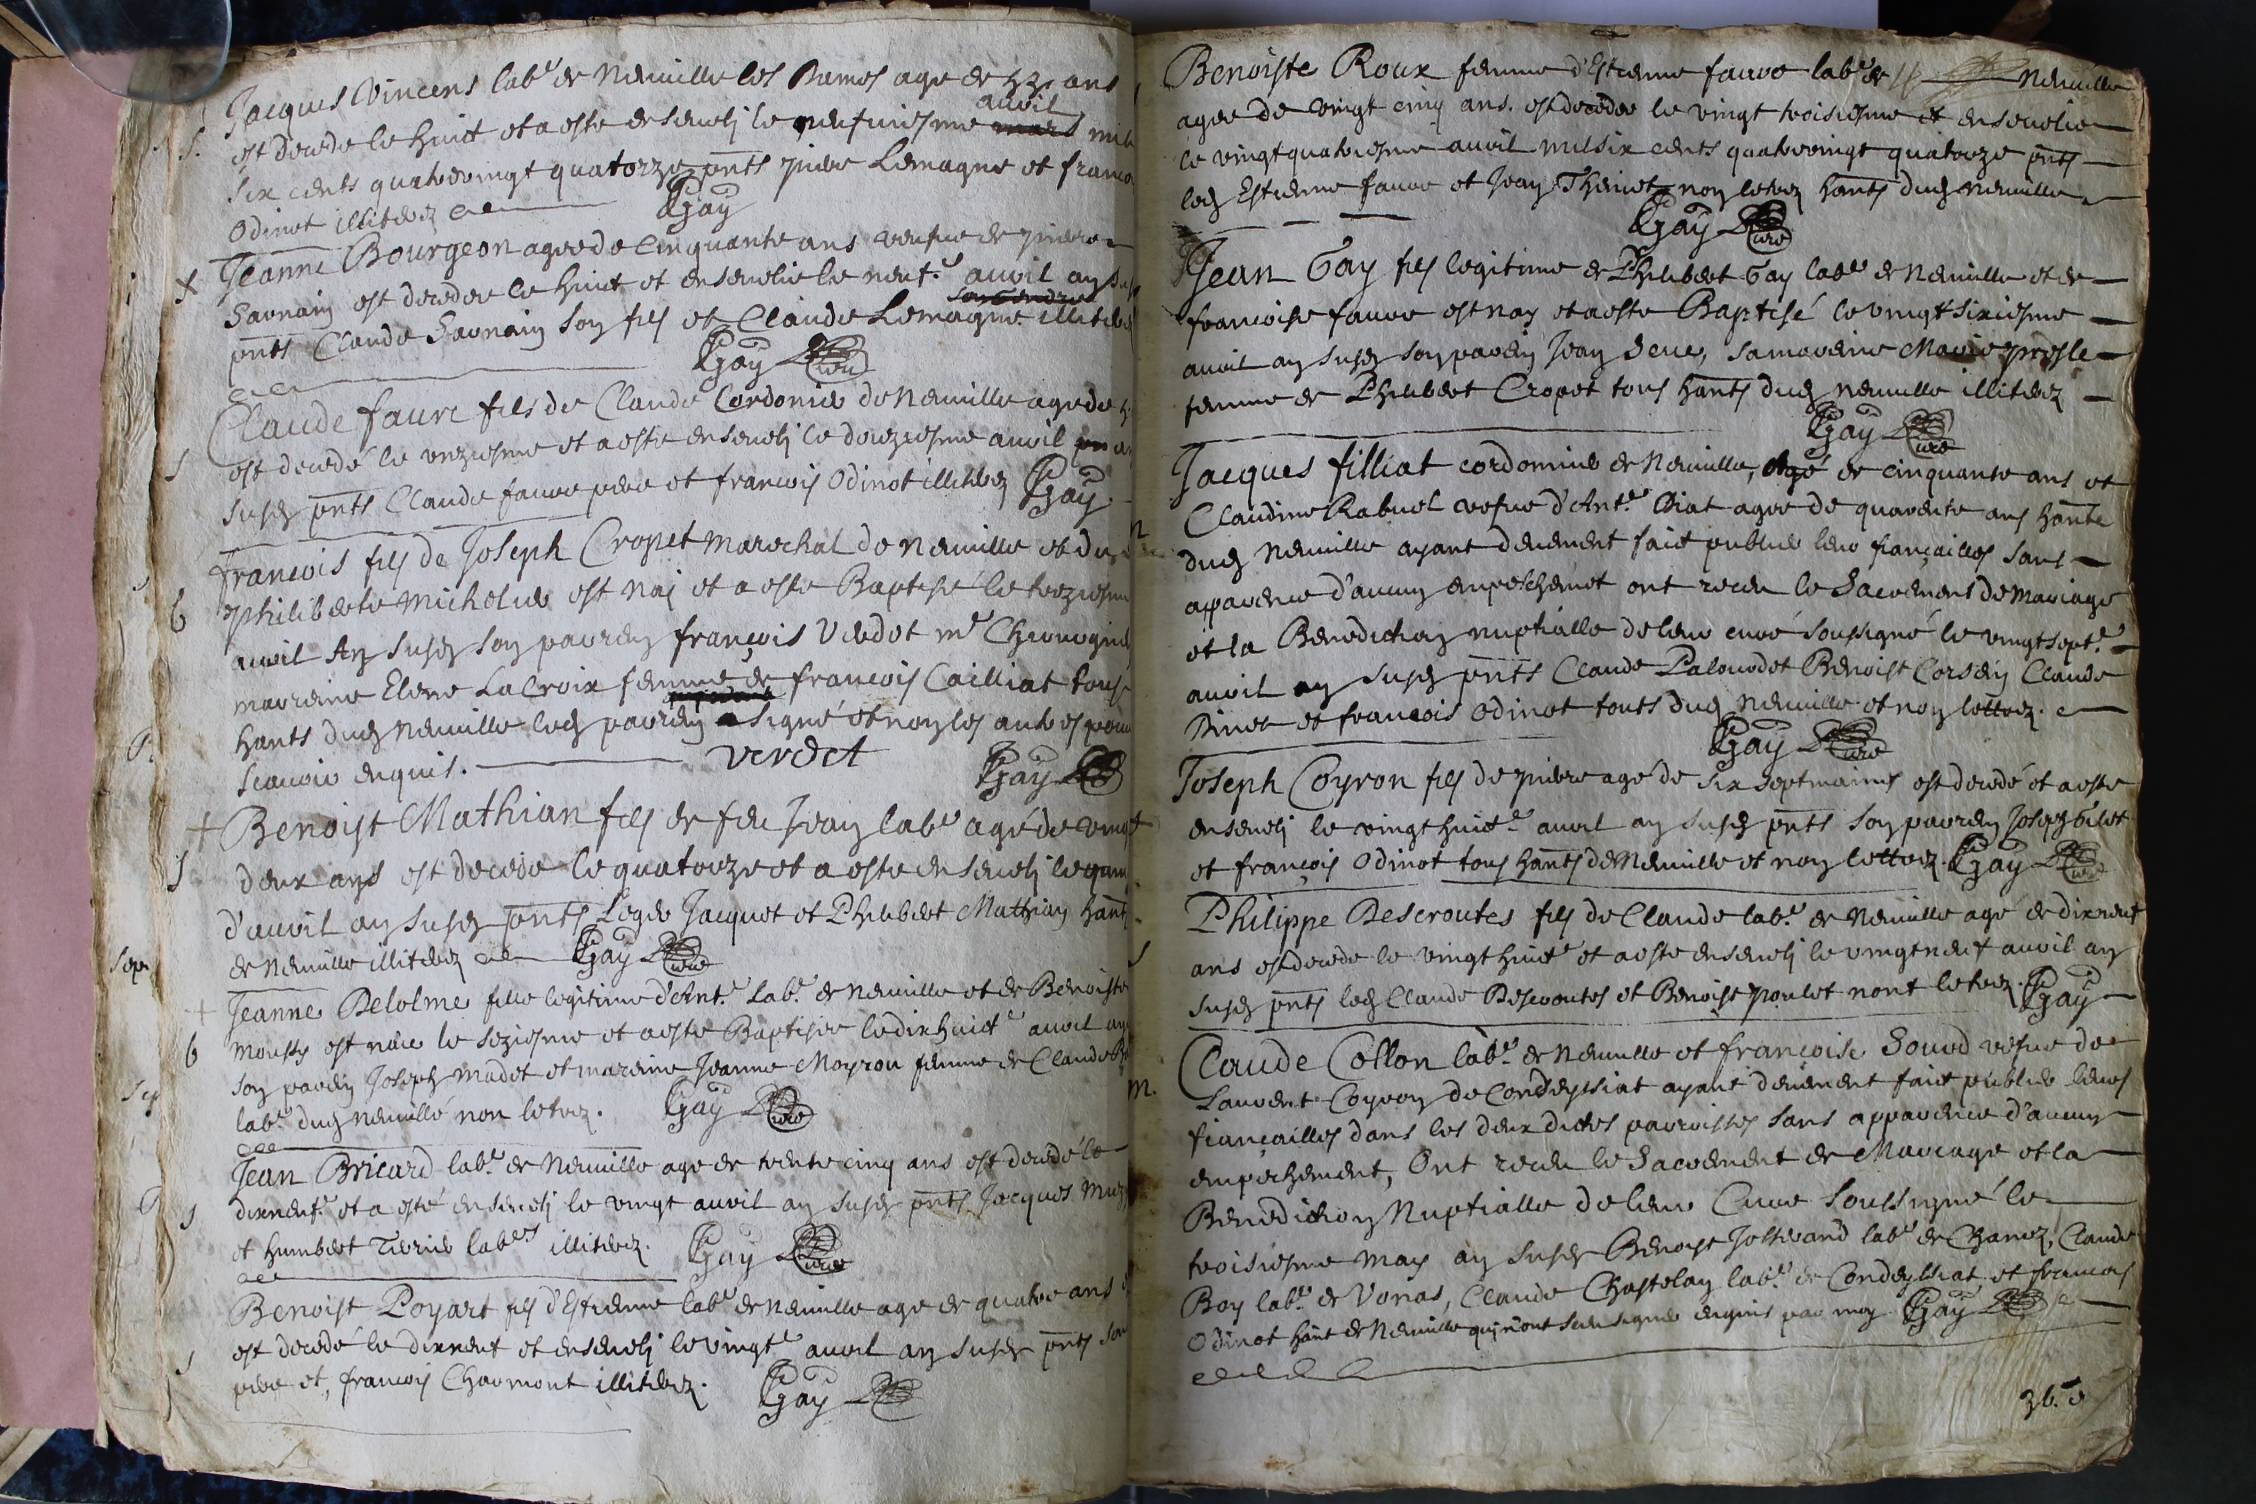 Jacques Vincens labr de Neuville les Dames age de ans
avril
S. est decede le huict et a este ensevelj le neufviesme mars mil
six cents quatrevingt quatorze pnts piere Lemagne et franco
Odinot illiterez Gay
x Jeanne Bourgeon agee de cinquante ans veufve de piere
Savrain est decedee le huict et ensevelie le neufe avril an sus
pnts Claude Savrain son fils et Claude Lemagne illiterez
Gay curé
Claude faure fils de Claude Cordonier de Neuville age de
S est decedé le unziesme et a este ensevelj le douziesme avril an
susd pnts Claude faure pere et francois Odinot illiterez Gay
francois fils de Joseph Cropet marechal de Neuville et de
b philiberte Michelier est naj et a este Baptisé le treziesme
avril An susd son parrein françois Verdet me Chirurgien
marreine Elene LaCroix femme de francois Cailliat tous
hants dud Neuville led parrein signé et non les autres pour
scavoir enquis. verdet Gay
+ Benoist Mathian fils de feu Jean labr agé de vingt
S deux ans est decede le quatorze et a este ensevelj le quin
d'avril an susd pnts Leger Jacquet et Philibert Mathian hants
de Neuville illiterez Gay curé
+ Jeanne Delolme fille legitime d'Ante Labr de Neuville et de Benoiste
b Moussy est näee le seziesme et a este Baptisée le dixhuicte avril an
son parein Joseph Madet et mareine Jeanne Moyrou femme de Claude
labr dud Neuville non letrez. Gay curé
Jean Bricard labr de Neuville age de trente cinq ans est decedé le
S dixneufe et a esté ensevelj le vingt avril an susd pnts Jacques
et humbert Tierrier labrs illiterez. Gay curé
Benoist Poyart fils d'Estienne labr de Neuville age de quatre ans
S est decedé le dixneuf et ensevelj le vingte avril an susd pnts son
pere et francois Charmont illiterez. Gay
Benoiste Roux femme d'Estienne faure labr de Neuville
agee de vingt cinq ans. est decedee le vingt troisiesme et ensevelie
le vingtquatriesme avril mil six cents quatrevingt quatorze pnts
led Estienne faure et Jean Thenet non letrez hants dud Neuville
Gay curé
Jean Gay fils legitime de Philibert Gay labr de Neuville et de
francoise faure est nay et a este Baptisé le vingt sixiesme
avril an susd son parein Jean Seve, sa mareine Marie presle
femme de Philibert Cropet tous hants dud Neuville illiterez
Gay curé
Jacques filliat cordonnier de Neuville, Agé de cinquante ans et
Claudine Rabuel vefve d'Ante Chiat agee de quarente ans hante
dud Neuville ayant deuement faict publier leur françailles sans
apparence d'aucun empeschemet ont receu le Sacrement de Mariage
et la Benediction nuptialle de leur curé soussigné le vingtsepte
avril an susd pnts Claude Palourdet Benoist Corsein Claude
Binet et francois Odinot touts dud Neuville et non lettrez.
Gay curé
Joseph Coyron fils de piere agé de six septmaines est decedé et a este
ensevelj le vingthuicte avril an susd pnts son parrein Joseph Gilet
et françois Odinot tous hants de Neuville et non lettrez. Gay curé
Philippe Descroutes fils de Claude labr de Neuville agé de dixneuf
S ans est decede le vingthuicte et a este ensevelj le vingtneuf avril an
susd pnts led Claude Descroutes et Benoist poulet nont letrez. Gay
Claude Collon labr de Neuville et francoise Sourd vefve de
m. Laurent Coyron de Condeyssiat ayant deuement faict publier leurs
fiançailles dans les deux dictes parroisses sans apparence d'aucun
empechement, Ont receu le Sacrement de Mariage et la
Benediction Nuptialle de leur Curé soussigné le
troisiesme may an susd Benoist Josserand labr de Chanoz, Claude
Boy labr de Vonas, Claude Chastelan labr de Condeyssiat et francois
Odinot hant de Neuville qui n'ont sceu signer enquis par moy Gay